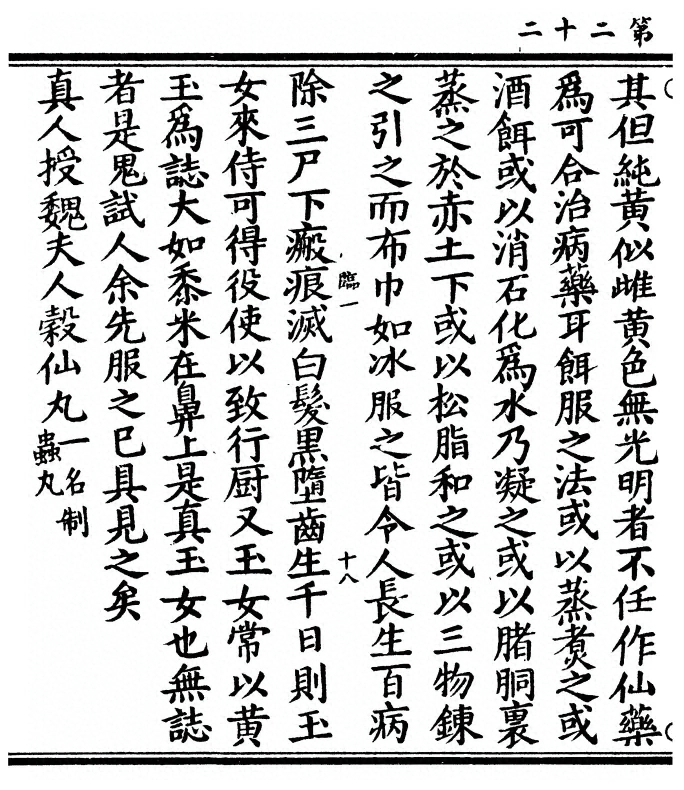 第二十二
其但純黃似雌黃色無光明者不任作仙藥
爲可合治病藥耳餌服之法或以蒸煑之或
酒餌或以消石化爲水乃凝之或以腤胴裏
蒸之於赤土下或以松脂和之或以三物鍊
之引之而布巾如冰服之皆令人長生百病
臨一
十八
除三尸下瘢痕滅白髮黒墮齒生千日則玉
女來侍可得役使以致行厨又玉女常以黃
玉爲誌大如黍米在鼻上是真玉女也無誌
者是鬼試人余先服之巳具見之矣
真人授魏夫人穀仙丸一名制
蟲丸